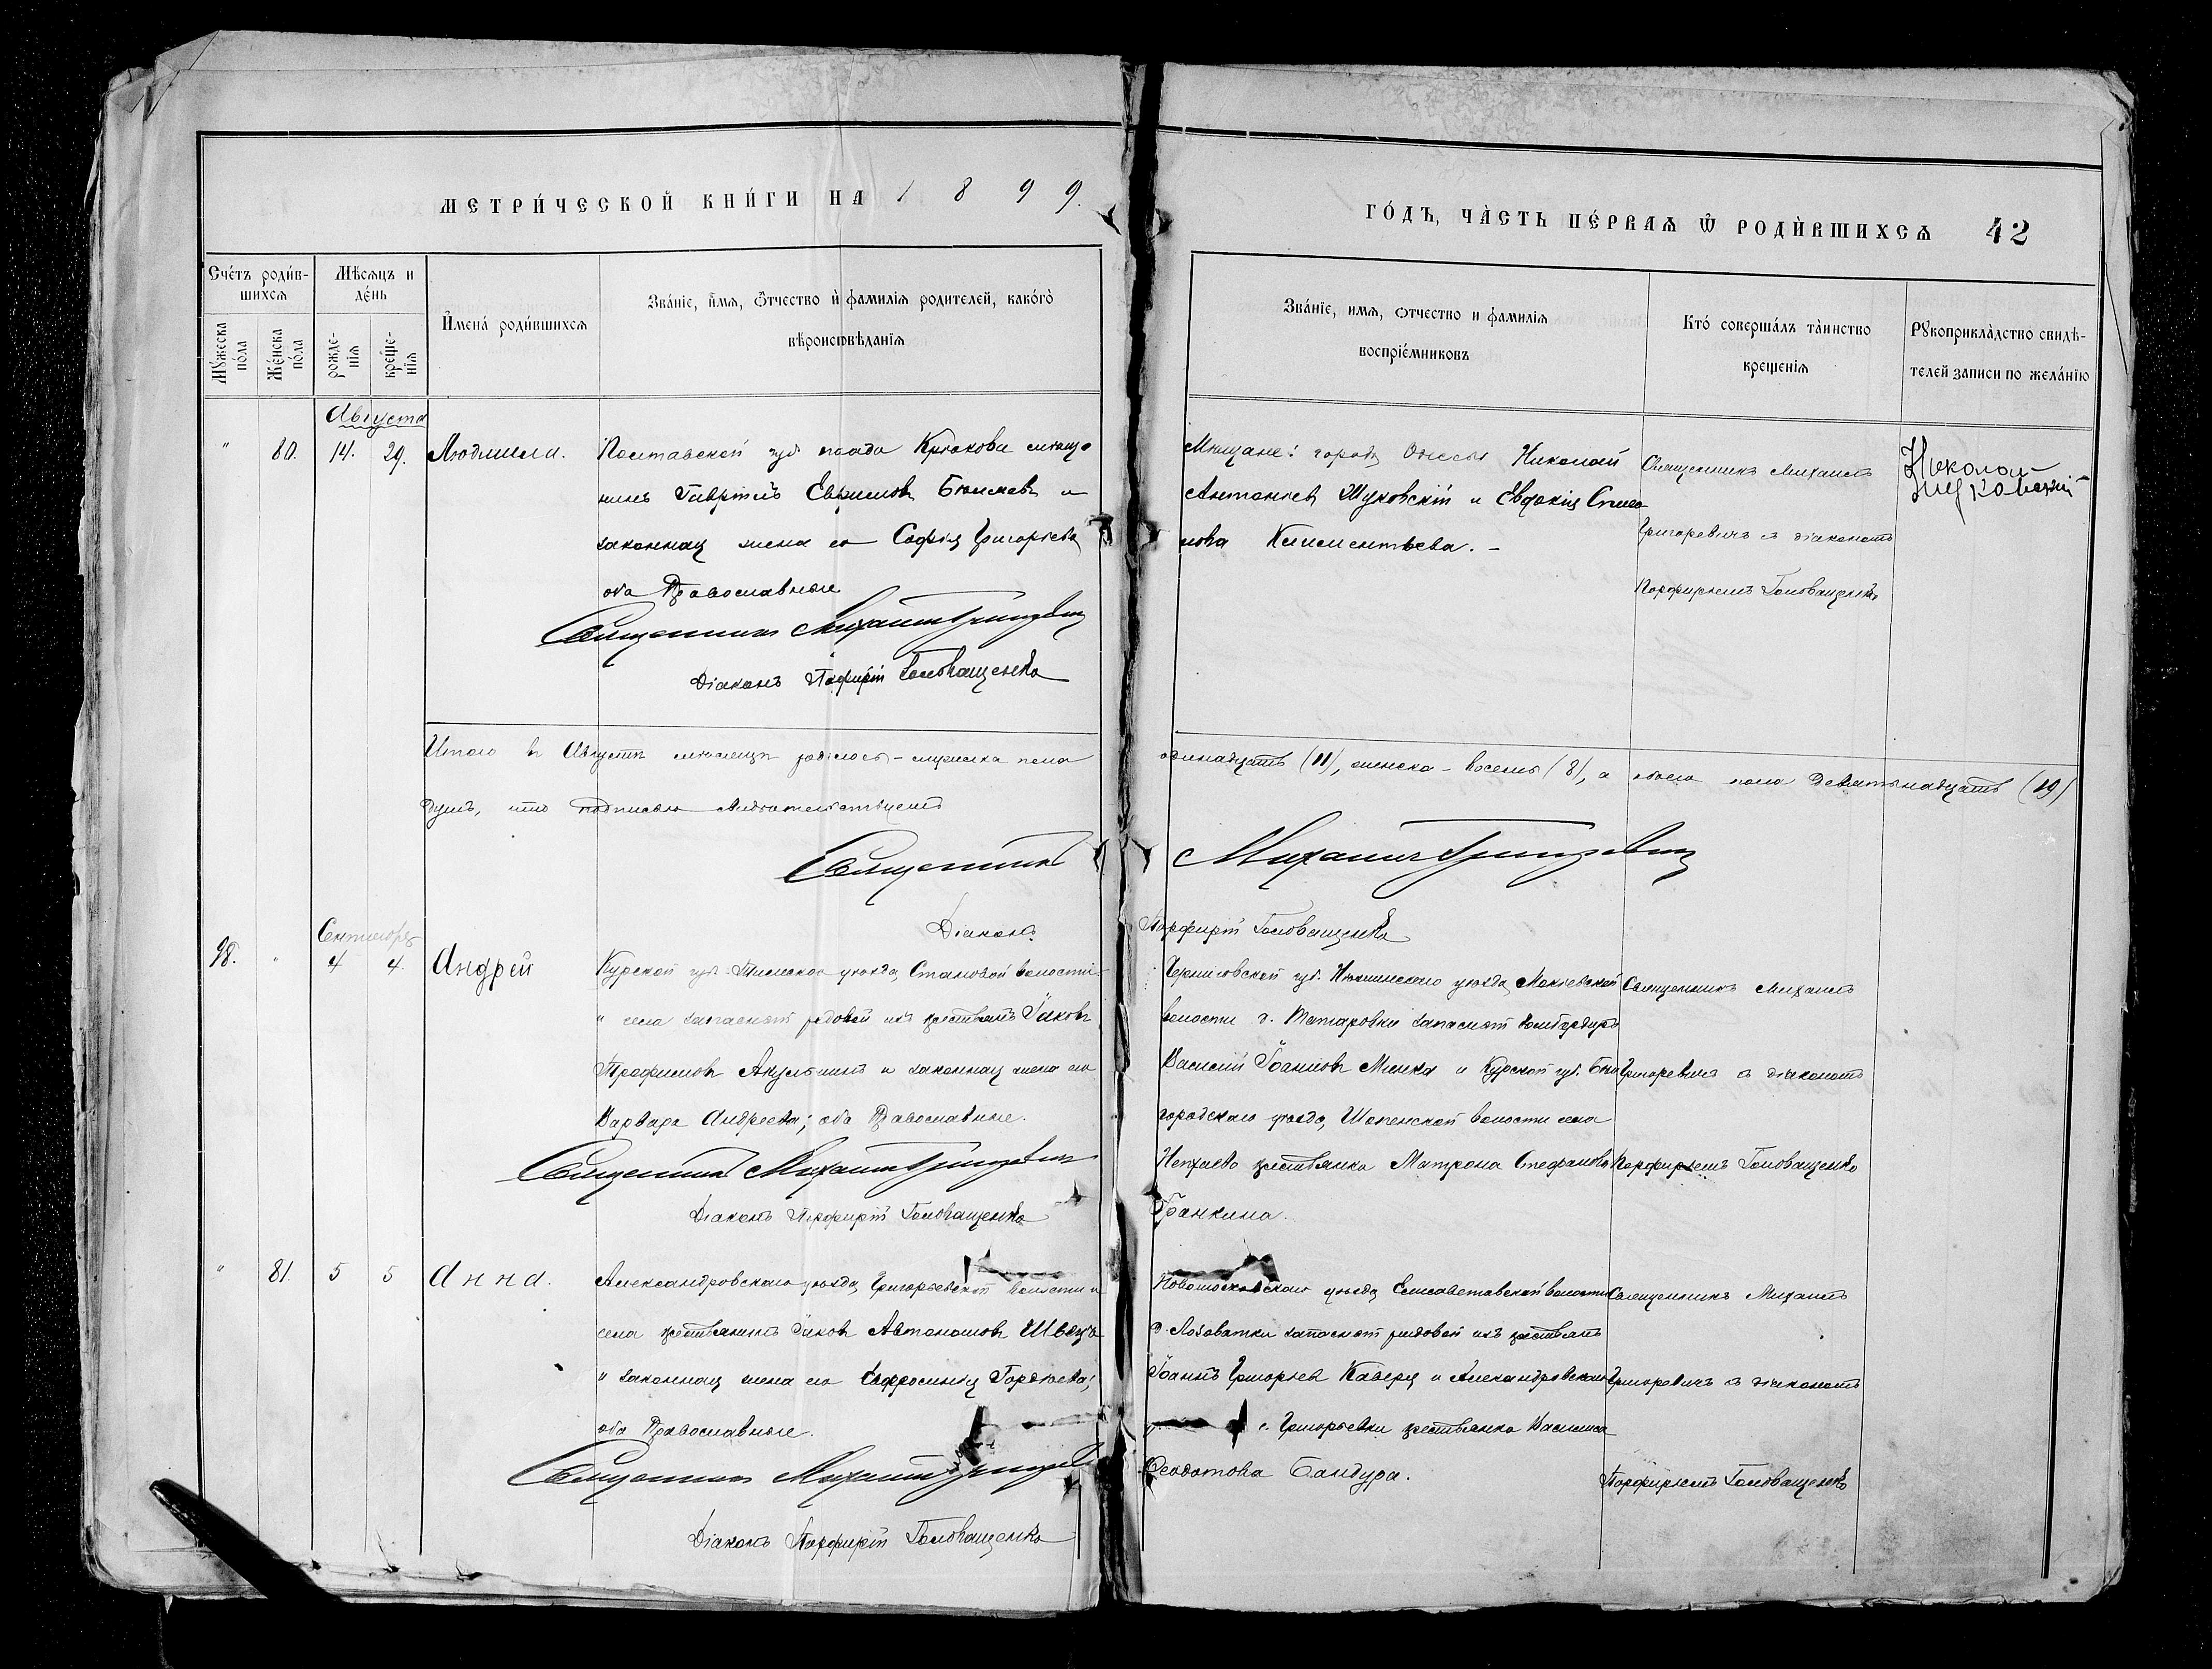 МЕТРИ́ЧЕСКОЙ КНИ́ГИ НА 1899.
ГО́ДЪ, ЧА̀СТЬ ПЕ́РВАѦ Ѿ РОДЍВШИХСѦ 42
Сче́тъ роди́в-
шихсѧ
Мѣсѧцъ и
де́нь
И҆мена́ роди́вшихсѧ
Зва́нїе, и҆́мѧ, Ѻ҆́тчество и҆ фамилїѧ родителей, како́го̀
вѣроисповѣданїѧ
Мꙋ́жеска
по́ла
Же́нска
по́ла
рожде-
нїѧ
креще-
нїѧ
Зва́нїе, имѧ, ѻтчество и фамилїѧ
воспрїе́мниковъ
Кто́ соверша́лъ та̀инство
крещенїѧ
Рꙋкоприкла̀дство свидѣ-
телей записи по жела́нїю
Августа
" 80. 14. 29. Людмила.
Полтавской губ. посада Крюкова мѣща-
нинъ Гавріилъ Евфимовъ и
законная жена его Софія Григоріева
оба Православные
Священникъ Михаилъ Григоревич
Діаконъ Порфирій Головащенко
Мѣщане: города Одессы Николай
Антоніевъ Жуковскій и Евдокія
Климентьева. -
Священникъ Михаилъ
Григоревичъ съ діакономъ
Порфиріемъ Головащенко
Николай
Жуковскій
Итого въ Августѣ мѣсяцѣ родилось - мужеска пола
одинадцать (11), женска - восемь (8), а обоего пола девятьнадцать (19)
душъ, что подписью свидѣтельствуемъ
Священникъ Михаилъ Григоревич
Діаконъ Порфирій Головащенко
Сентября
98. " 4 4. Андрей
Курской губ. Тимскаго уѣзда, Становой волости
" села запасный рядовой изъ крестьянъ Іаковъ
Трофимовъ Акульшинъ и законная жена его
Варвара Андреева; оба Православные.
Священникъ Михаилъ Григоревич
Діаконъ Порфирій Головащенко
Черниговской губ. Нѣжинскаго уѣзда, Макіевской
волости д. Татаровки запасный бомбардиръ
Василій Іоанновъ Милка и Курской губ. Бѣло-
городскаго уѣзда, Шопенской волости села
Непхаева крестьянка Матрона Стефанова
Ганкина.
Священникъ Михаилъ
Григоревичъ съ діакономъ
Порфиріемъ Головащенко
" 81. 5 5 Анна.
Александровскаго уѣзда, Григорьевской волости и
села крестьянинъ Іаковъ Автономовъ Швецъ
и законная жена его Евфросинія Гордѣева;
оба Православные.
Священникъ Михаилъ
Діаконъ Порфирій Головащенко
Новомосковскаго уѣзда, Елисаветовской волости
д. Лозоватки запасный рядовой изъ крестьянъ
Іоаннъ Григорьевъ Каверя и Александровскаго
у. с. Григорьевки крестьянка Василиса
Феодотова Бандура.
Священникъ Михаилъ
Григоревичъ съ діакономъ
Порфиріемъ Головащенко